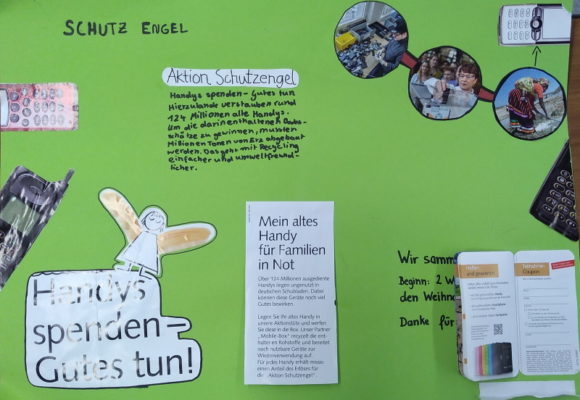 SCHUTZ ENGEL
Aktion Schutzengel
Handys spenden – Gutes tun
Hierzulande verstauben rund
124 Millionen alte Handys.
Um die darin enthaltenen Boden-
schätze zu gewinnen, müssten
Millionen Tonen von Erz abgebaut
werden. Das geht mit Recycling
einfacher und umweltfreund-
licher.
Handys
spenden –
Gutes tun!
Mein altes
Handy
für Familien
in Not
Über 124 Millionen ausgediente
Handys liegen ungenutzt in
deutschen Schubladen. Dabei
können diese Geräte noch viel
Gutes bewirken.
Legen Sie Ihr altes Handy in
unsere Aktionstüte und werfen
Sie diese in die Box. Unser Partner
„Mobile-Box“ recycelt die ent-
haltenen Rohstoffe und bereitet
noch nutzbare Geräte zur
Wiederverwendung auf.
Für jedes Handy erhält missio
einen Anteil des Erlöses für
die „Aktion Schutzengel“.
Wir samm
Beginn: 2 W
den Weihn
Danke für
und gewinnen
Teilnahme-
Coupon